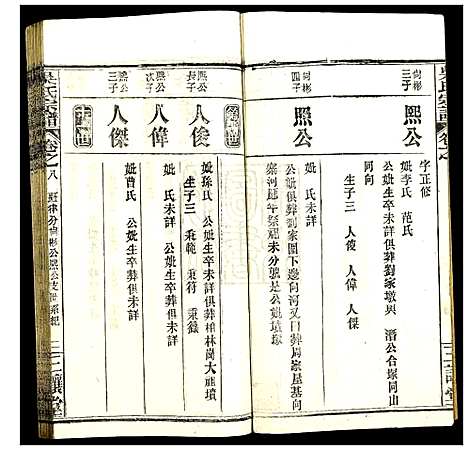 尙彬
三子
熙公
字正修
妣李氏 范氏
公妣生卒未詳俱葬劉家墩與 潛公合塚同山
同向
生子三 人俊 人偉 人傑
尙彬
四子
照公
妣 氏未詳
公妣俱葬劉家園下邊向河又曰葬周家屋基向
未分號是公妣塚
熙公
長子
人俊
妣孫氏 公妣生卒未詳俱葬柏林崗大祖墳
生子三 秉範 秉符
熙公
次子
人偉
妣 氏未詳 公妣生卒葬俱未詳
熙公
三子
人傑
妣曹氏 公妣生卒葬俱未詳
吳氏宗譜
卷之八
三讓堂